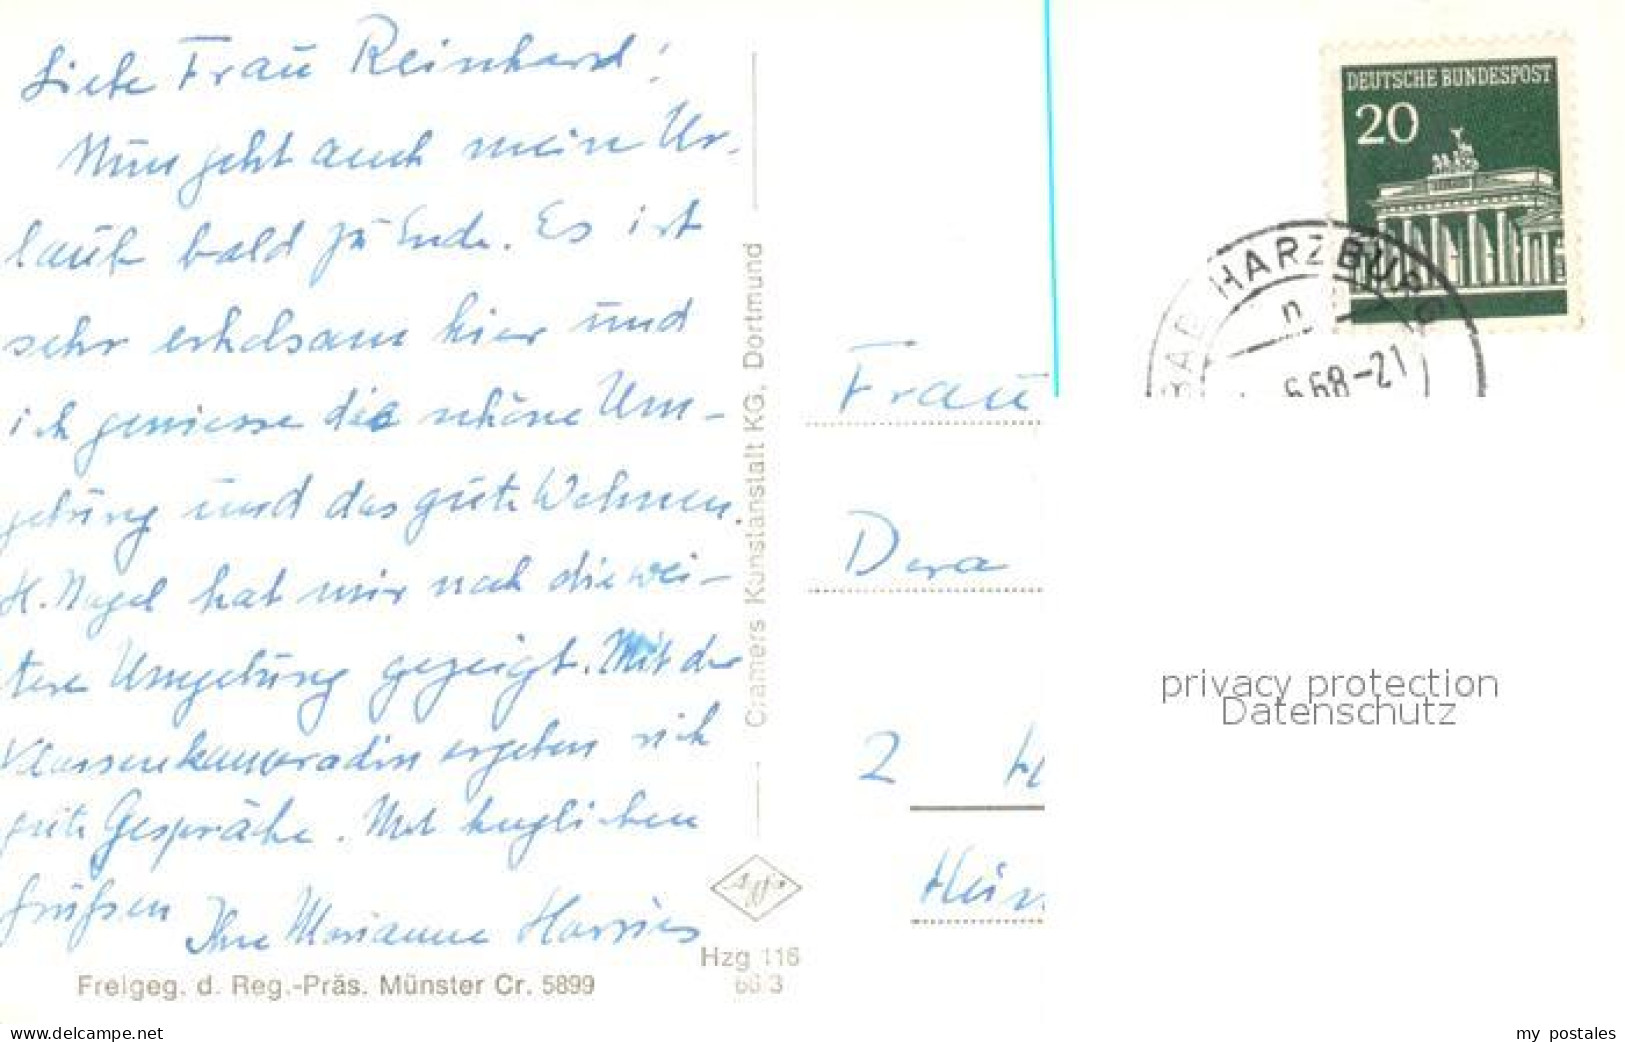 Liebe Frau Reinhard!
Nun geht auch mein Ur-
laub bald zu Ende. Es ist
sehr erholsam hier und
ich geniesse die schöne Um-
gebung und das gute Wohnen.
H. Nagel hat mir noch die wei-
tere Umgebung gezeigt. Mit der
Klassenkameradin ergeben sich
gute Gespräche. Mit herzlichen
Grüßen Ihre Marianne Harries
Freigeg. d. Reg.-Präs. Münster Cr. 5899
Cramers Kunstanstalt KG, Dortmund
Agfa
Hzg 116
66/3
DEUTSCHE BUNDESPOST
20
BAD HARZBURG
n
6.68-21
Frau
Dora
2 H
privacy protection
Datenschutz
www.delcampe.net
my postales